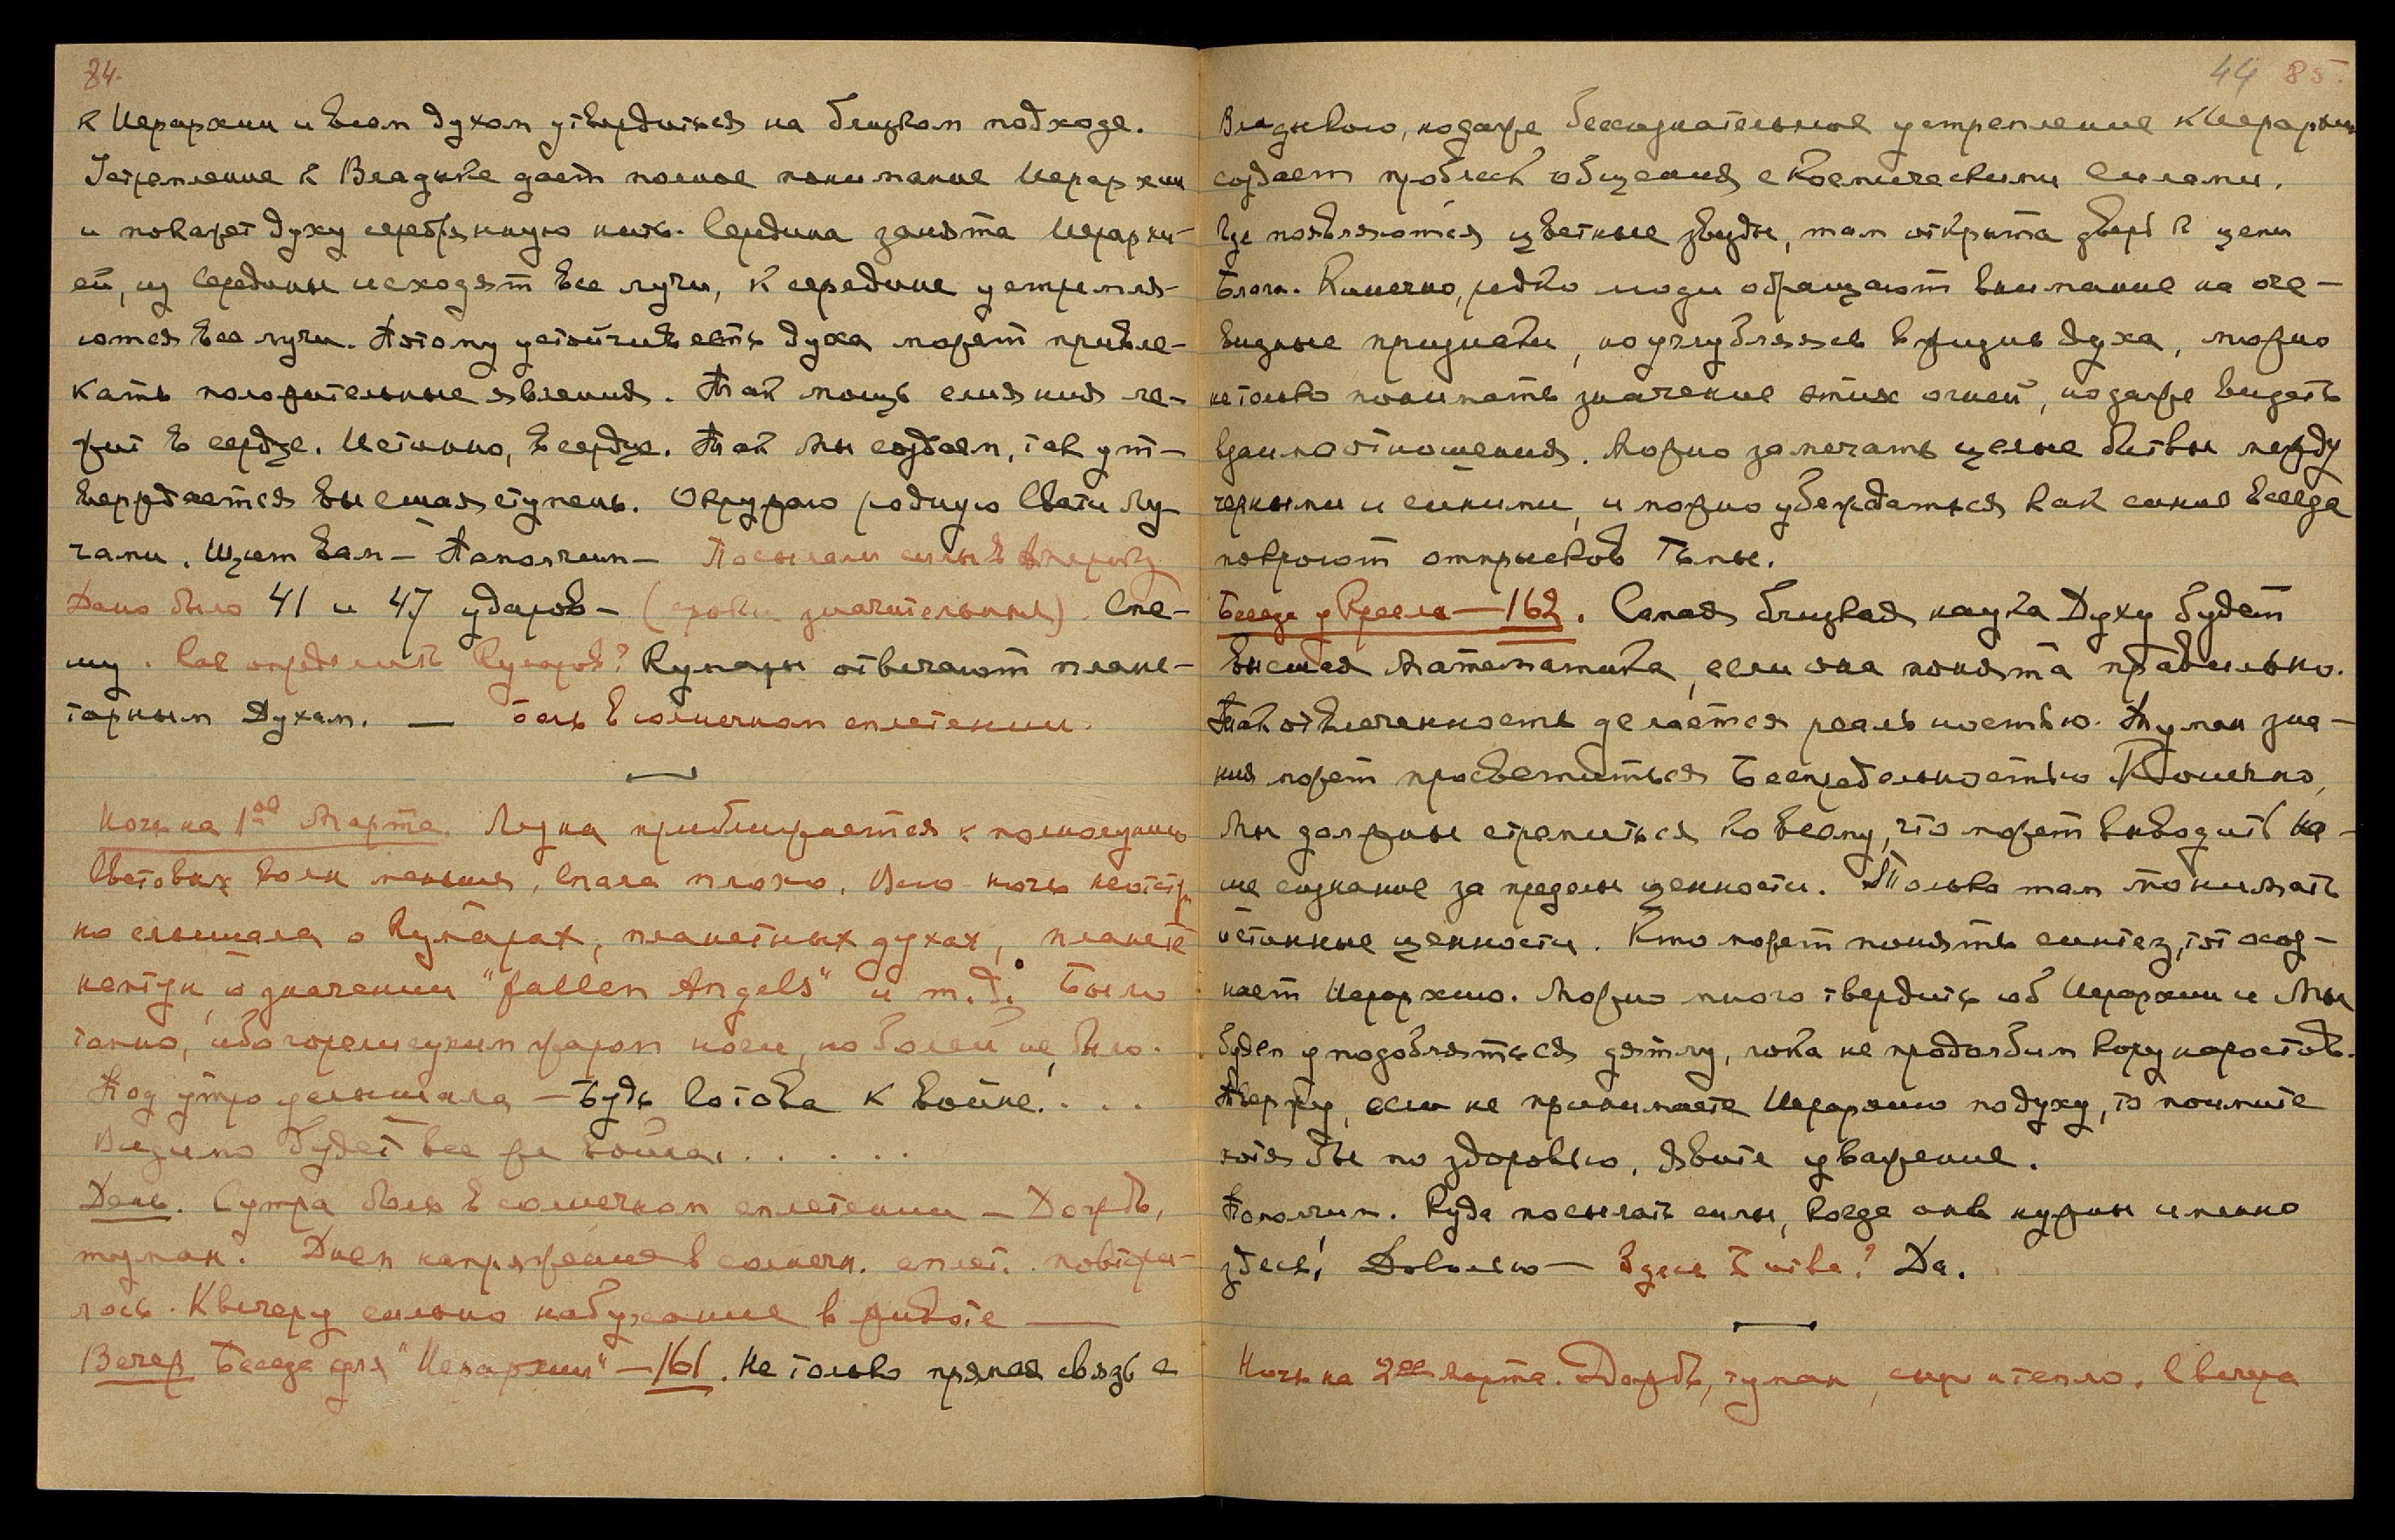 84.
к Иерархии и всем духом утвердиться на близком подходе.
Устремление к Владыке дает полное понимание Иерархии
и покажет духу серебряную нить. Середина занята Иерархи-
ей, из середины исходят все лучи, к середине устремля-
ются все лучи. Потому устойчивость духа может привле-
кать положительные явления. Так мощь слияния ле-
жит в сердце. Истинно, в сердце. Так Мы создаем, так ут-
верждается высшая ступень. Окружаю родную Свати Лу-
чами. Щит вам — Помолчим — Посылали силы в Америку.
Дано было 41 и 47 ударов — (сроки значительны). Спе-
шу. Как определить Кумаров? Кумары отвечают плане-
тарным Духам. — боль в солнечном сплетении.
Ночь на 1ое Марта. Луна приближается к полнолунию
Световых волн меньше, спала плохо. Всю ночь
но слышала о Кумарах, планетных духах, планете
Нептун, о значении "fallen Angels" и т.д. Было
томно, ибо горели сухим жаром ноги, но болей не было.
Под утро услышала — Будь готова к войне. . . .
Видимо будет все же война . . . . .
День. С утра боль в солнечном сплетении — Дождь,
туман. Днем напряжение в солнечн. сплет. повтори-
лось. К вечеру сильно набухание в животе —
Вечер Беседа для "Иерархии" — 161. Не только прямая связь с
44 85.
Владыкою, но даже бессознательное устремление к Иерархии
создает проблеск общения с космическими силами.
Где появляются цветные звезды, там открыта дверь к цепи
Блага. Конечно, редко люди обращают внимание на оче-
видные признаки, но углубляясь в жизнь духа, можно
не только понимать значение этих огней, но даже видеть
взаимоотношения. Можно замечать целые битвы между
черными и синими, и можно убеждаться как синие всегда
покроют отпрысков Тьмы.
Беседа у Кресла — 162. Самая близкая наука Духу будет
высшая Математика, если она понята правильно.
Так отвлеченность делается реальностью. Туман зна-
ния может просветиться Беспредельностью. Конечно,
мы должны стремиться ко всему, что может выводить на-
ше сознание за пределы ценности. Только там понимать
истинные ценности. Кто может понять синтез, тот осоз-
нает Иерархию. Можно много твердить об Иерархии и Мы
будем уподобляться дятлу, пока не продолбим кору наростов.
Твержу, если не принимаете Иерархию по духу, то поймите
хотя бы по здоровью. Явите уважение.
Помолчим. Куда посылать силы, когда они нужны именно
здесь! Довольно — Здесь Битва? Да.
Ночь на 2ое Марта. Дождь, туман, сыро и тепло. С вечера